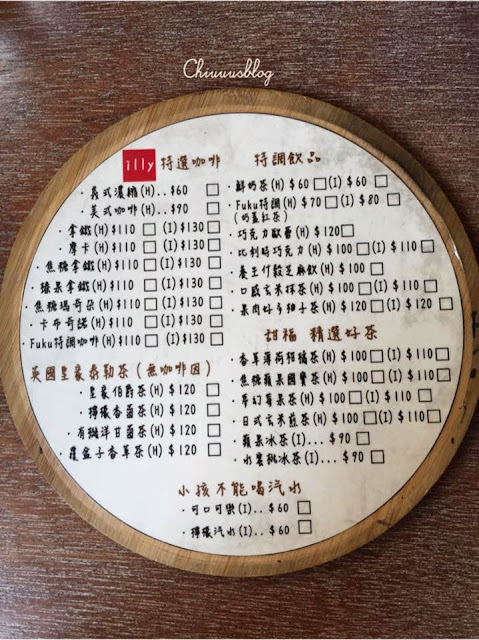 Chiuuusblog
illy 特選咖啡
・義式濃縮(H)..$60 □
・美式咖啡(H)..$90 □
・拿鐵(H)$110 □ (I)$130 □
・摩卡(H)$110 □ (I)$130 □
・焦糖拿鐵(H)$110 □ (I)$130 □
・榛果拿鐵(H)$110 □ (I)$130 □
・焦糖瑪奇朵(H)$110 □ (I)$130 □
・卡布奇諾(H)$110 □ (I)$130 □
・Fuku特調咖啡(H)$110 □ (I)$130 □
英國皇家泰勒茶(無咖啡因)
・皇家伯爵茶(H)$120 □
・檸檬香茴茶(H)$120 □
・有機洋甘菊茶(H)$120 □
・覆盆子香草茶(H)$120 □
特調飲品
・鮮奶茶(H)$60 □ (I)$60 □
・Fuku特調(H)$70 □ (I)$80 □
(奶蓋紅茶)
・巧克力歐蕾(H)$120 □
・比利時巧克力(H)$100 □ (I)$110 □
・養生作穀芝麻飲(H)$100 □
・口感玄米抹茶(H)$100 □ (I)$110 □
・果肉好多柚子茶(H)$120 □ (I)$120 □
甜福 精選好茶
・香草薄荷柑橘茶(H)$100 □ (I)$110 □
・焦糖蘋果國寶茶(H)$100 □ (I)$110 □
・夢幻莓果茶(H)$100 □ (I)$110 □
・日式玄米煎茶(H)$100 □ (I)$110 □
・蘋果冰茶(I)...$90 □
・水蜜桃冰茶(I)...$90 □
小孩不能喝汽水
・可口可樂(I)..$60 □
・檸檬汽水(I)..$60 □